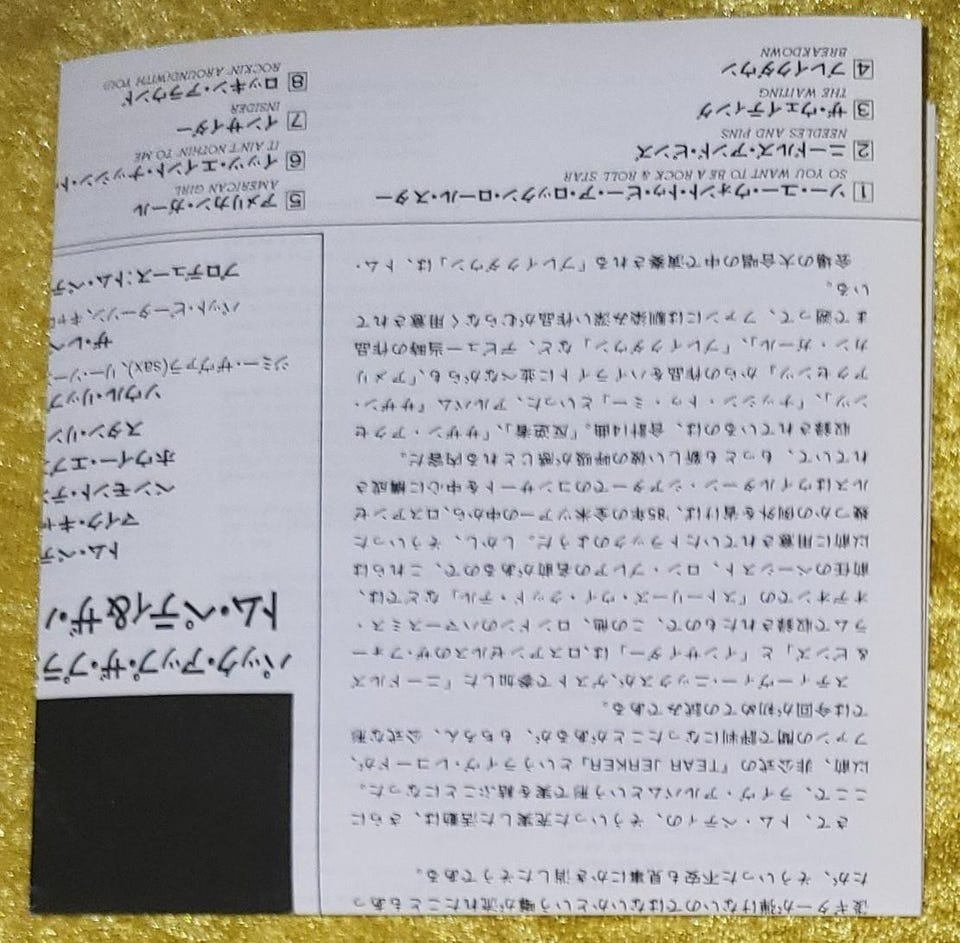 涯ギターが弾けないのではないかという噂が流れたこともあっ
たが、そういった不安も見事にかき消したそうである。
さて、トム・ペティの、そういった充実した活動は、さらに
ここで、ライヴ・アルバムという形で実を結ぶことになった。
以前、非公式の『TEAR JERKER』というライヴ・レコードが、
ファンの間で評判になったことがあるが、もちろん、公式な形
では今回が初めての試みである。
スティーヴィー・ニックスが、ゲストで参加した「ニードルズ
&ピンズ」と「インサイダー」は、ロスアンゼルスのザ・フォー
ラムで収録されたもので、この他、ロンドンのハマースミス・
オデオンでの「ストーリーズ・ウィ・クッド・テル」などでは、
前任のベーシスト、ロン・ブレアの名前があるので、これらは
以前に用意されていたトラックのようだ。しかし、そういった
幾つかの例外を省けば、'85年の全米ツアーの中から、ロスアンゼ
ルスはウィルターン・シアターでのコンサートを中心に構成さ
れていて、もっとも新しい彼の呼吸が感じとれる内容だ。
収録されているのは、合計14曲。「反逆者」、「サザン・アクセ
ンツ」、「ナッシン・トゥ・ミー」といった、アルバム『サザン・
アクセンツ』からの作品をハイライトに並べながらも、「アメリ
カン・ガール」、「ブレイクダウン」など、デビュー当時の作品
まで遡って、ファンには馴染み深い作品がむらなく用意されて
いる。
会場の大合唱の中で演奏される「ブレイクダウン」は、トム・
パック・アップ・ザ・プラ
トム・ペティ&ザ・ハ
トム・ペテ
マイク・キャ
ベンモント・テン
ホウィー・エプ
スタン・リン
ソウル・リップ
ジミー・ザ・ヴァラ(sax)、リー・ソーン
ザ・レベ
パット・ピーターソン、キャロ
プロデュース:トム・ペテ
1 ソー・ユー・ウォント・トゥ・ビー・ア・ロックン・ロール・スター
SO YOU WANT TO BE A ROCK & ROLL STAR
2 ニードルズ・アンド・ピンズ
NEEDLES AND PINS
3 ザ・ウェイティング
THE WAITING
4 ブレイクダウン
BREAKDOWN
5 アメリカン・ガール
AMERICAN GIRL
6 イッツ・エイント・ナッシン・ト
IT AIN'T NOTHIN' TO ME
7 インサイダー
INSIDER
8 ロッキン・アラウンド
ROCKIN' AROUND(WITH YOU)